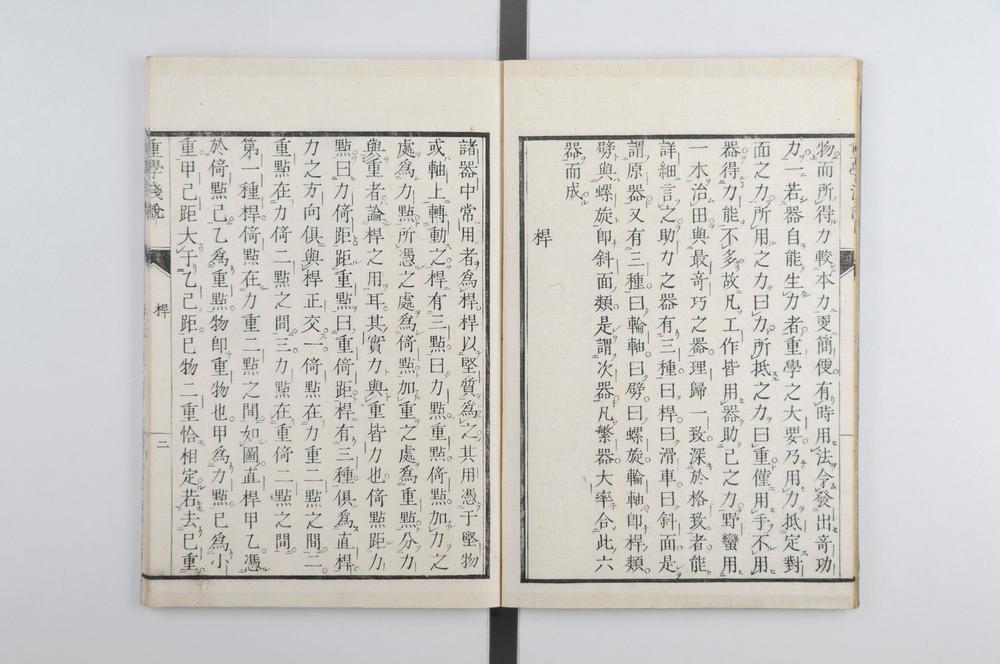 物而所得力較本力更簡便有時用法令發出奇功
力一若器自能生力者重學之大要乃用力抵定對
面之力所用之力曰力所抵之力曰重僅用手不用
器得力能不多故凡工作皆用器助己之力野蠻用
一木治田與最奇巧之器理歸一致深於格致者能
詳細言之助力之器有三種曰桿曰滑車曰斜面是
謂原器又有三種曰輪軸曰劈曰螺旋輪軸卽桿類
劈與螺旋卽斜面類是謂次器凡繁器大率合此六
器而成
桿
諸器中常用者爲桿以堅質爲之其用憑于堅物
或軸上轉動之桿有三點曰力點重點倚點加力之
處爲力點所憑之處爲倚點加重之處爲重點分力
與重者論桿之用耳其實力與重皆力也倚點距力
點曰力倚距距重點曰重倚距桿有三種俱爲直桿
力之方向俱與桿正交一倚點在力重二點之間二
重點在力倚二點之間三力點在重倚二點之間
第一種桿倚點在力重二點之間如圖直桿甲乙憑
於倚點己乙爲重點物卽重物也甲爲力點巳爲小
重甲己距大于乙己距巳物二重恰相定若去巳重
重學淺說
桿
二